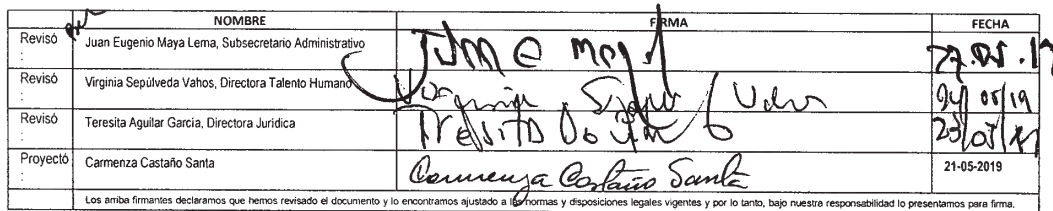 NOMBRE FIRMA FECHA
Revisó : Juan Eugenio Maya Lema, Subsecretario Administrativo Juan e Maya 27.05.19
Revisó : Virginia Sepúlveda Vahos, Directora Talento Humano Virginia Sepúlveda Vahos 24/05/19
Revisó : Teresita Aguilar Garcia, Directora Juridica Teresita 23/05/19
Proyectó : Carmenza Castaño Santa Carmenza Castaño Santa 21-05-2019
Los arriba firmantes declaramos que hemos revisado el documento y lo encontramos ajustado a las normas y disposiciones legales vigentes y por lo tanto, bajo nuestra responsabilidad lo presentamos para firma.